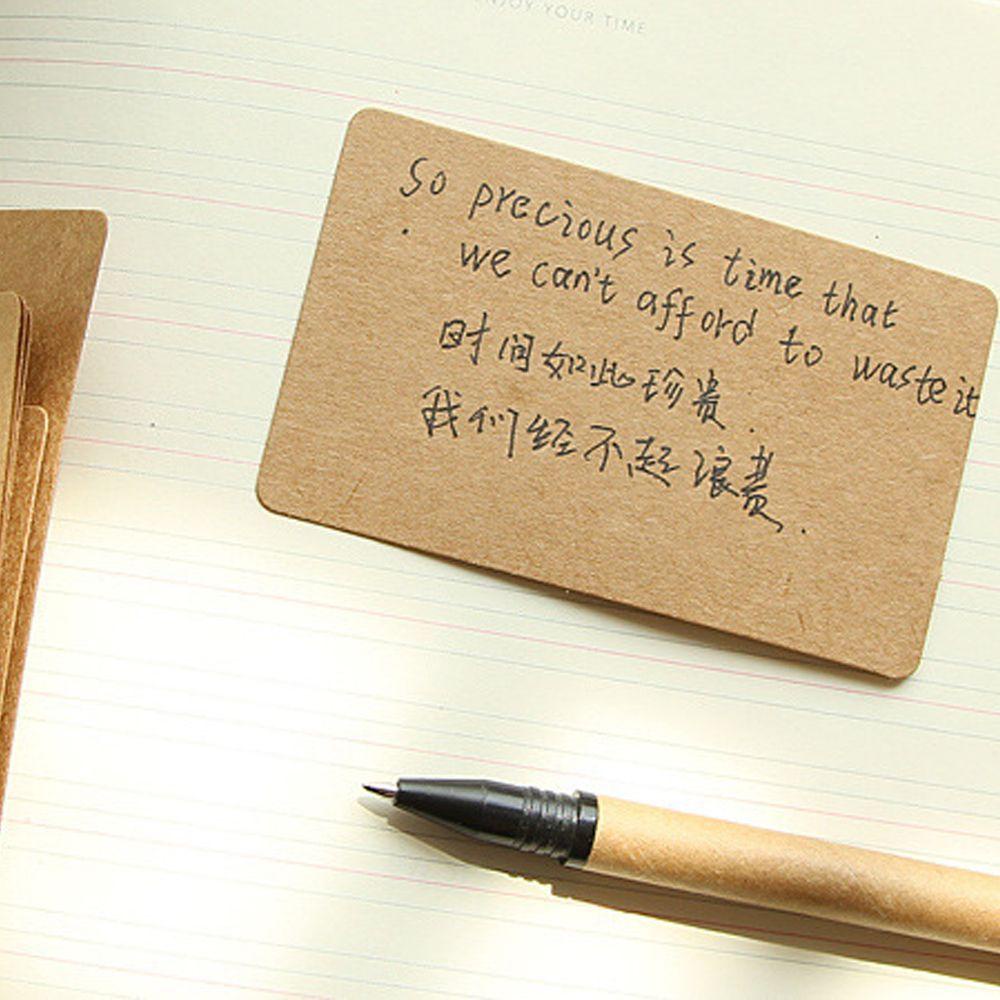 ENJOY YOUR TIME
So precious is time that
we can't afford to waste it
时间如此珍贵.
我们经不起浪费.